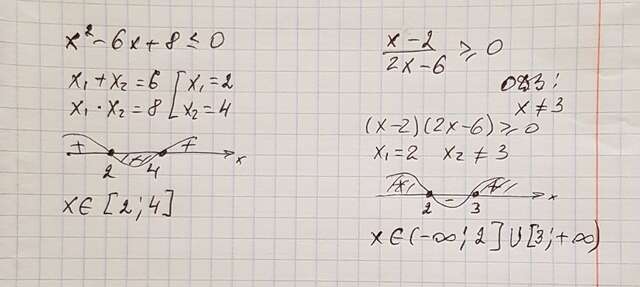 x² - 6x + 8 ≤ 0
x₁ + x₂ = 6 [ x₁ = 2
x₁ · x₂ = 8 [ x₂ = 4
+ - +
2 4 x
x ∈ [2; 4]
x-2
2x-6 ≥ 0
ОДЗ:
x ≠ 3
(x-2)(2x-6) ≥ 0
x₁ = 2 x₂ ≠ 3
+ - +
2 3 x
x ∈ (-∞; 2] ∪ [3; +∞)